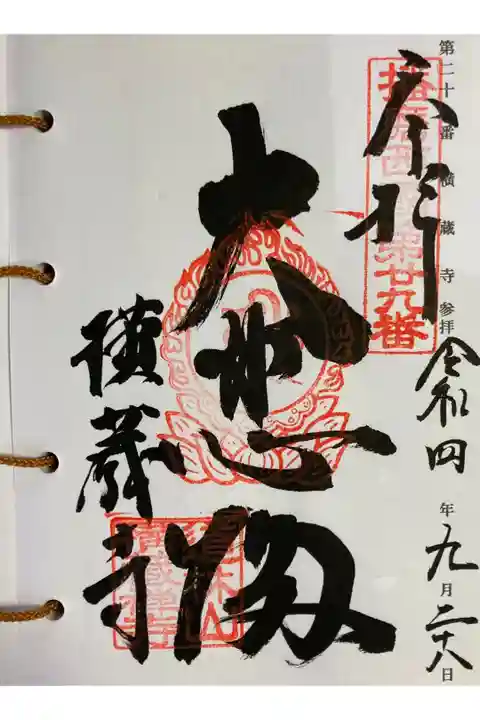 第二十番横蔵寺参拝 令和四年九月二十八日
奉拝
播磨西国第廿九番
大悲殿
横蔵寺